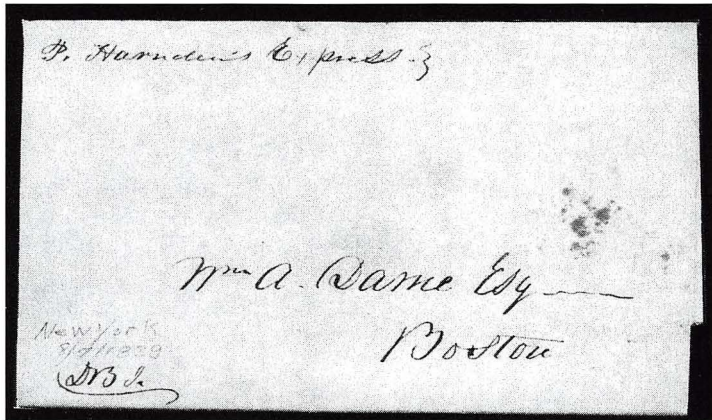 P. Harnden's Express.
Wm A. Dame Esq
Boston
New York